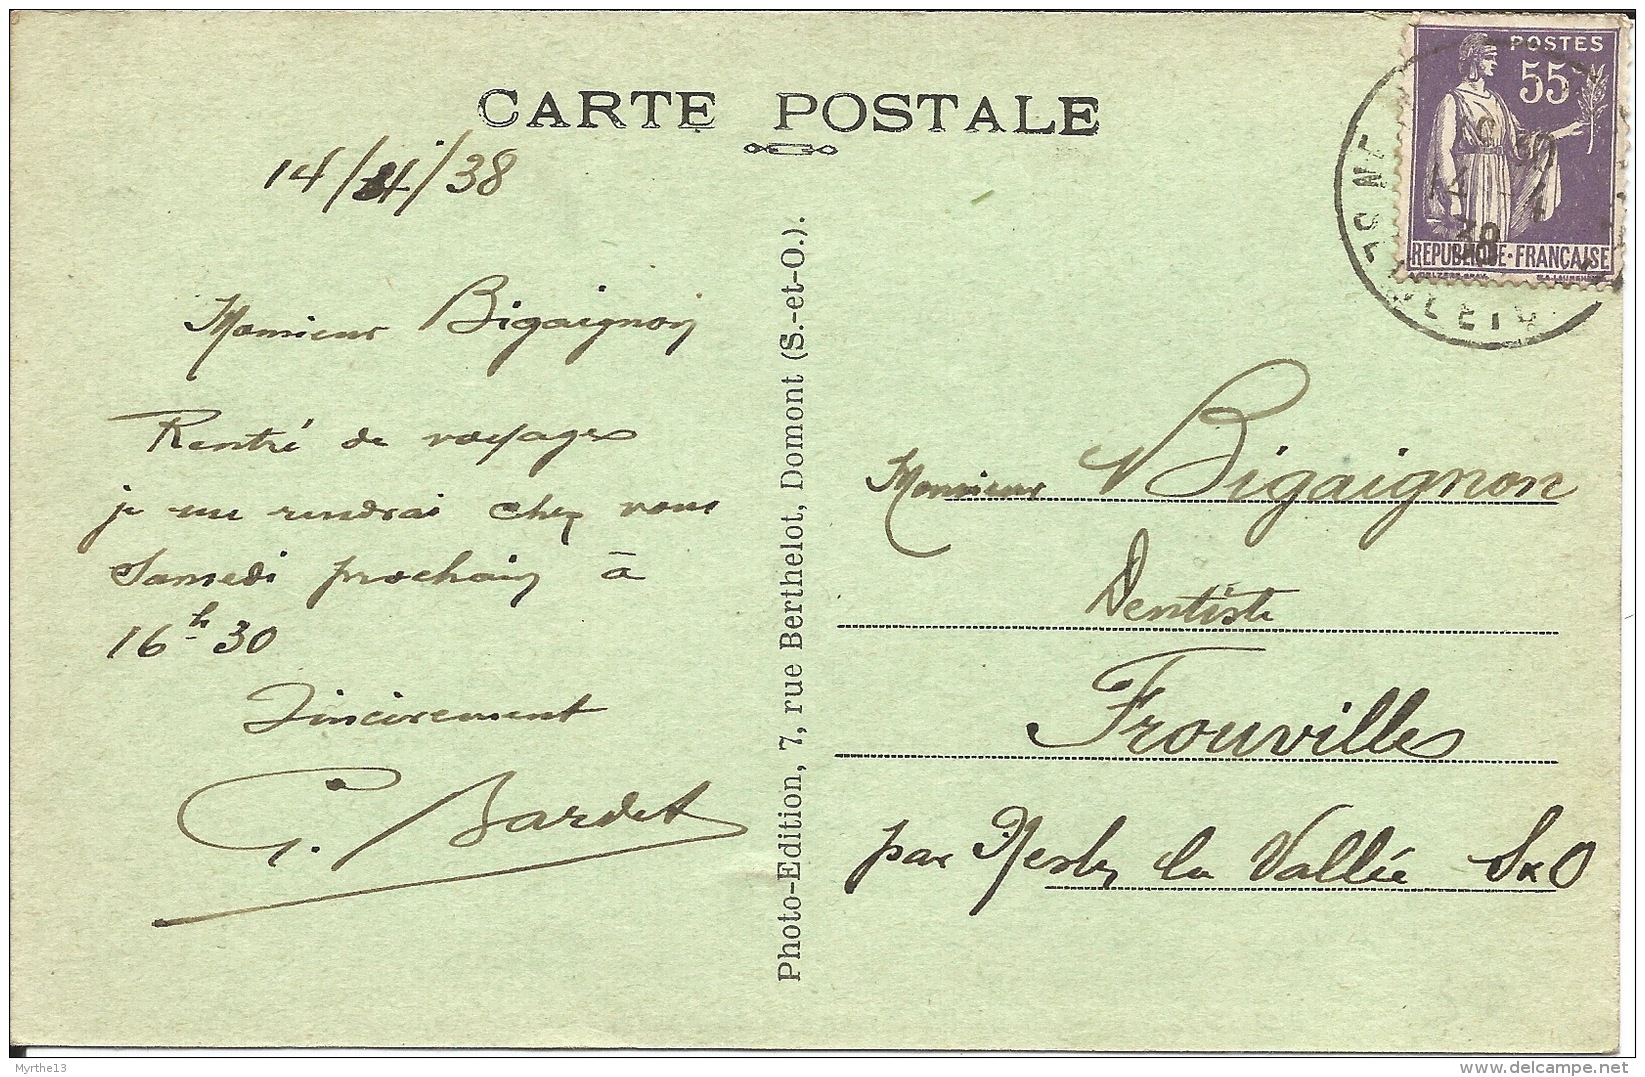 CARTE POSTALE
14/4/38
Monsieur Bigaignon
Rentré de voyages
je me rendrai chez vous
Samedi prochain à
16h 30
Sincèrement
G. Bardet
Photo-Edition, 7, rue Berthelot, Domont (S.-et-O.).
POSTES
55
REPUBLIQUE-FRANÇAISE
14 - 4
38
Monsieur Bigaignon
Dentiste
Frouvilles
par Nesles la Vallée S&O
Myrthe13
delcampe.net